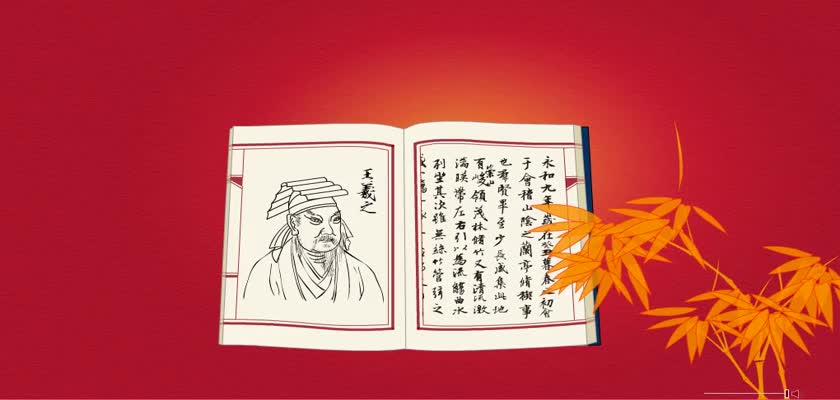 王羲之
永和九年歲在癸丑暮春之初會
于會稽山陰之蘭亭脩稧事
也羣賢畢至少長咸集此地
有崇山峻領茂林脩竹又有清流激
湍暎帶左右引以為流觴曲水
列坐其次雖無絲竹管弦之